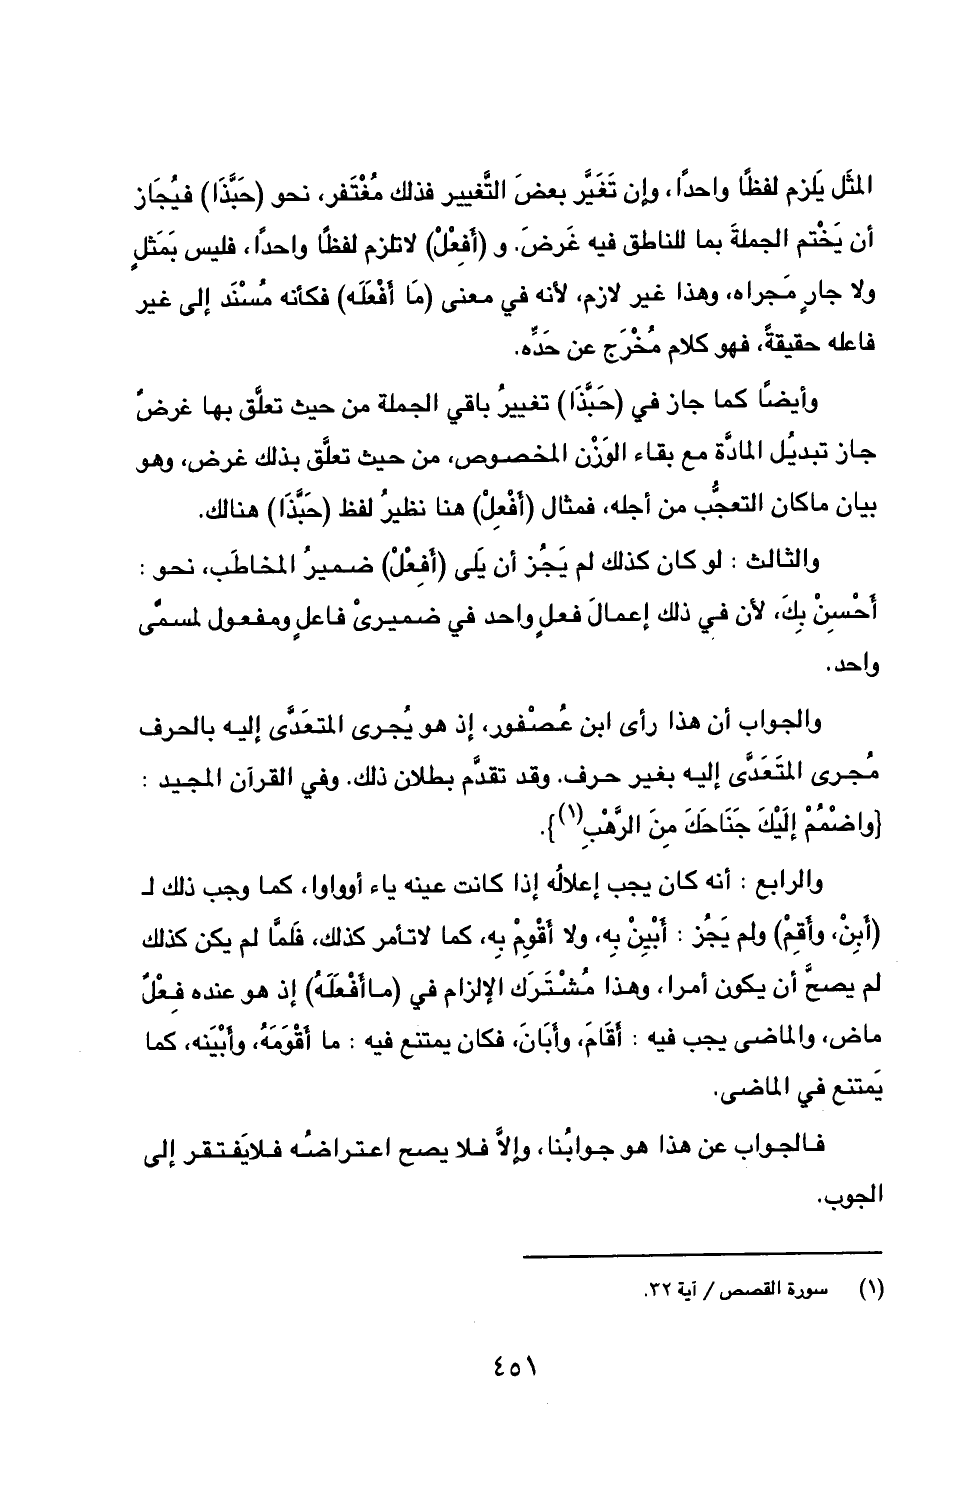 المثَل يَلزم لفظًا واحدًا، وإن تَغَيَّر بعضَ التَّغيير فذلك مُغْتَفر، نحو (حَبَّذَا) فيُجَاز
أن يَخْتم الجملةَ بما للناطق فيه غَرضَ. و (أَفعِلْ) لاتلزم لفظًا واحدًا، فليس بمَثلٍ
ولا جارٍ مَجراه، وهذا غير لازم، لأنه في معنى (مَا أفْعَلَه) فكأنه مُسْنَد إلى غير
فاعله حقيقةً، فهو كلام مُخْرَج عن حَدِّه.
وأيضًا كما جاز في (حَبَّذَا) تغييرُ باقي الجملة من حيث تعلَّق بها غرضٌ
جاز تبديُل المادَّة مع بقاء الوَزْن المخصوص، من حيث تعلَّق بذلك غرض، وهو
بيان ماكان التعجُّب من أجله، فمثال (أَفْعِلْ) هنا نظيرُ لفظ (حَبَّذَا) هنالك.
والثالث : لو كان كذلك لم يَجُز أن يَلَى (أَفعِلْ) ضميرُ المخاطَب، نحو :
أَحْسِنْ بِكَ، لأن في ذلك إعمالَ فعلٍ واحد في ضميرىْ فاعلٍ ومفعول لمسمًّى
واحد.
والجواب أن هذا رأى ابن عُصْفور، إذ هو يُجرى المتعَدَّى إليه بالحرف
مُجرى المتَعَدَّى إليه بغير حرف. وقد تقدَّم بطلان ذلك. وفي القرآن المجيد :
{واضْمُمْ إلَيْكَ جَنَاحَكَ مِنَ الرَّهْبِ(١)}.
والرابع : أنه كان يجب إعلالُه إذا كانت عينه ياء أوواوا، كما وجب ذلك لـ
(أَبِنْ، وأَقِمْ) ولم يَجُز : أَبْيِنْ بِه، ولا أقْوِمْ بِه، كما لاتأمر كذلك، فَلمَّا لم يكن كذلك
لم يصحَّ أن يكون أمرا، وهذا مُشْتَرَك الإلزام في (ماأَفْعَلَهُ) إذ هو عنده فِعْلٌ
ماض، والماضى يجب فيه : أَقَامَ، وأَبَانَ، فكان يمتنع فيه : ما أقْوَمَهُ، وأَبْيَنه، كما
يَمتنع في الماضى.
فالجواب عن هذا هو جوابُنا، وإلاَّ فلا يصح اعتراضُه فلايَفتقر إلى
الجوب.
(١) سورة القصص / آية ٣٢.
٤٥١